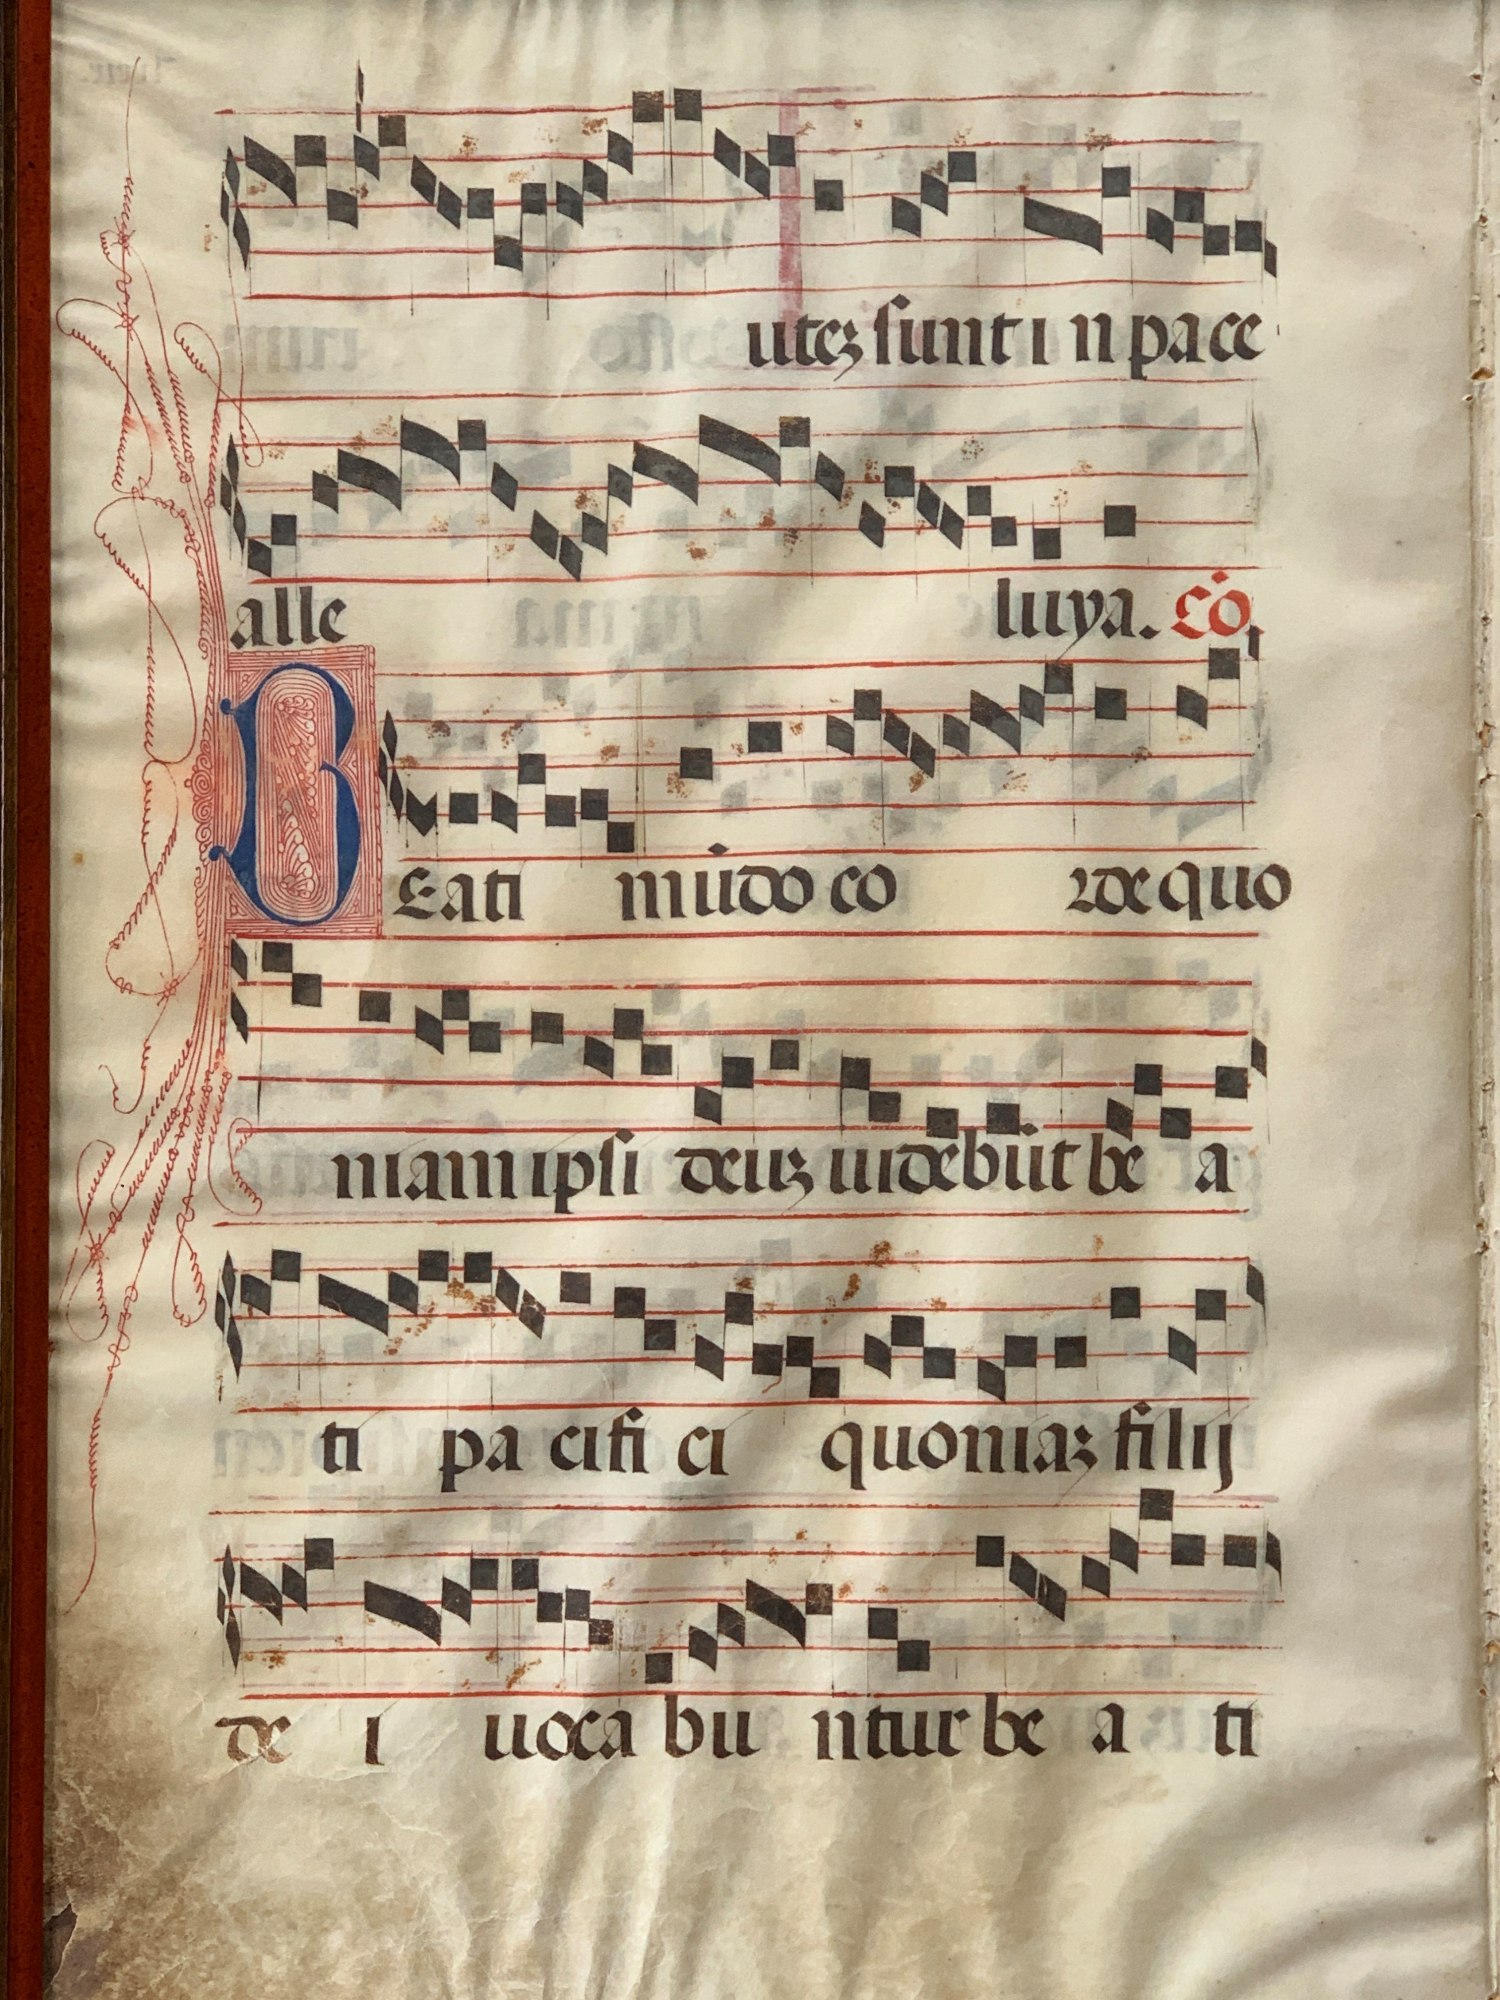 utez sunt i n pa ce
alle luya. Cō
BEati mūdo co rde quo
niam ipsi deuz uidebūt be a
ti pa cifi ci quoniaz filij
de i uoca bu ntur be a ti